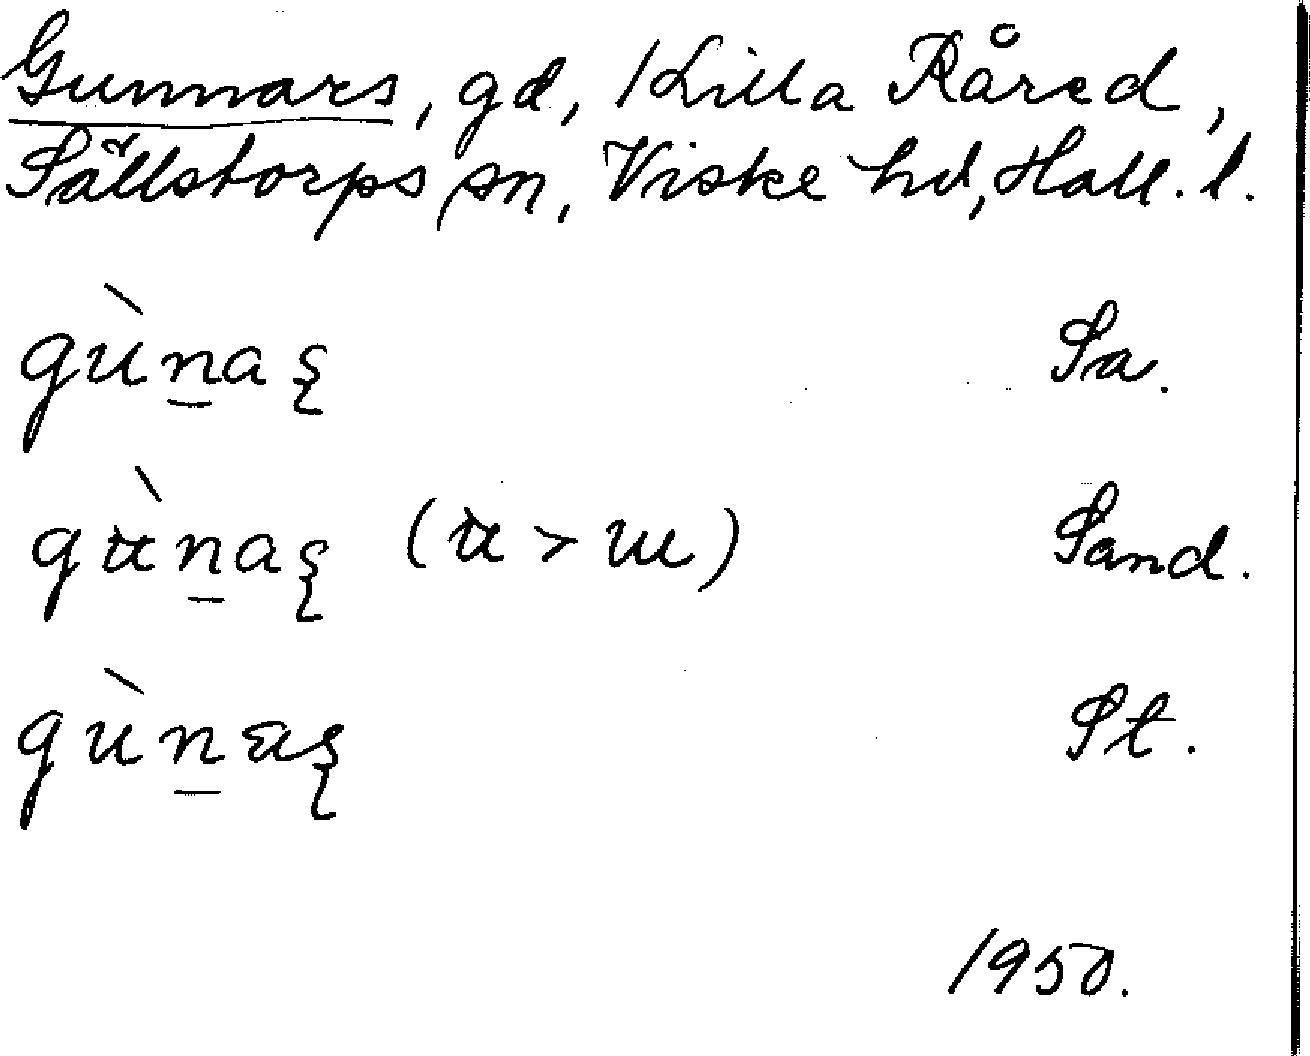 Gunnars, gd, Lilla Råred,
Sällstorps sn, Viske hd, Hall. l.
gùn̲aş Sa.
gùn̲aş (u > ɯ) Sand.
gùn̲aş St.
1950.